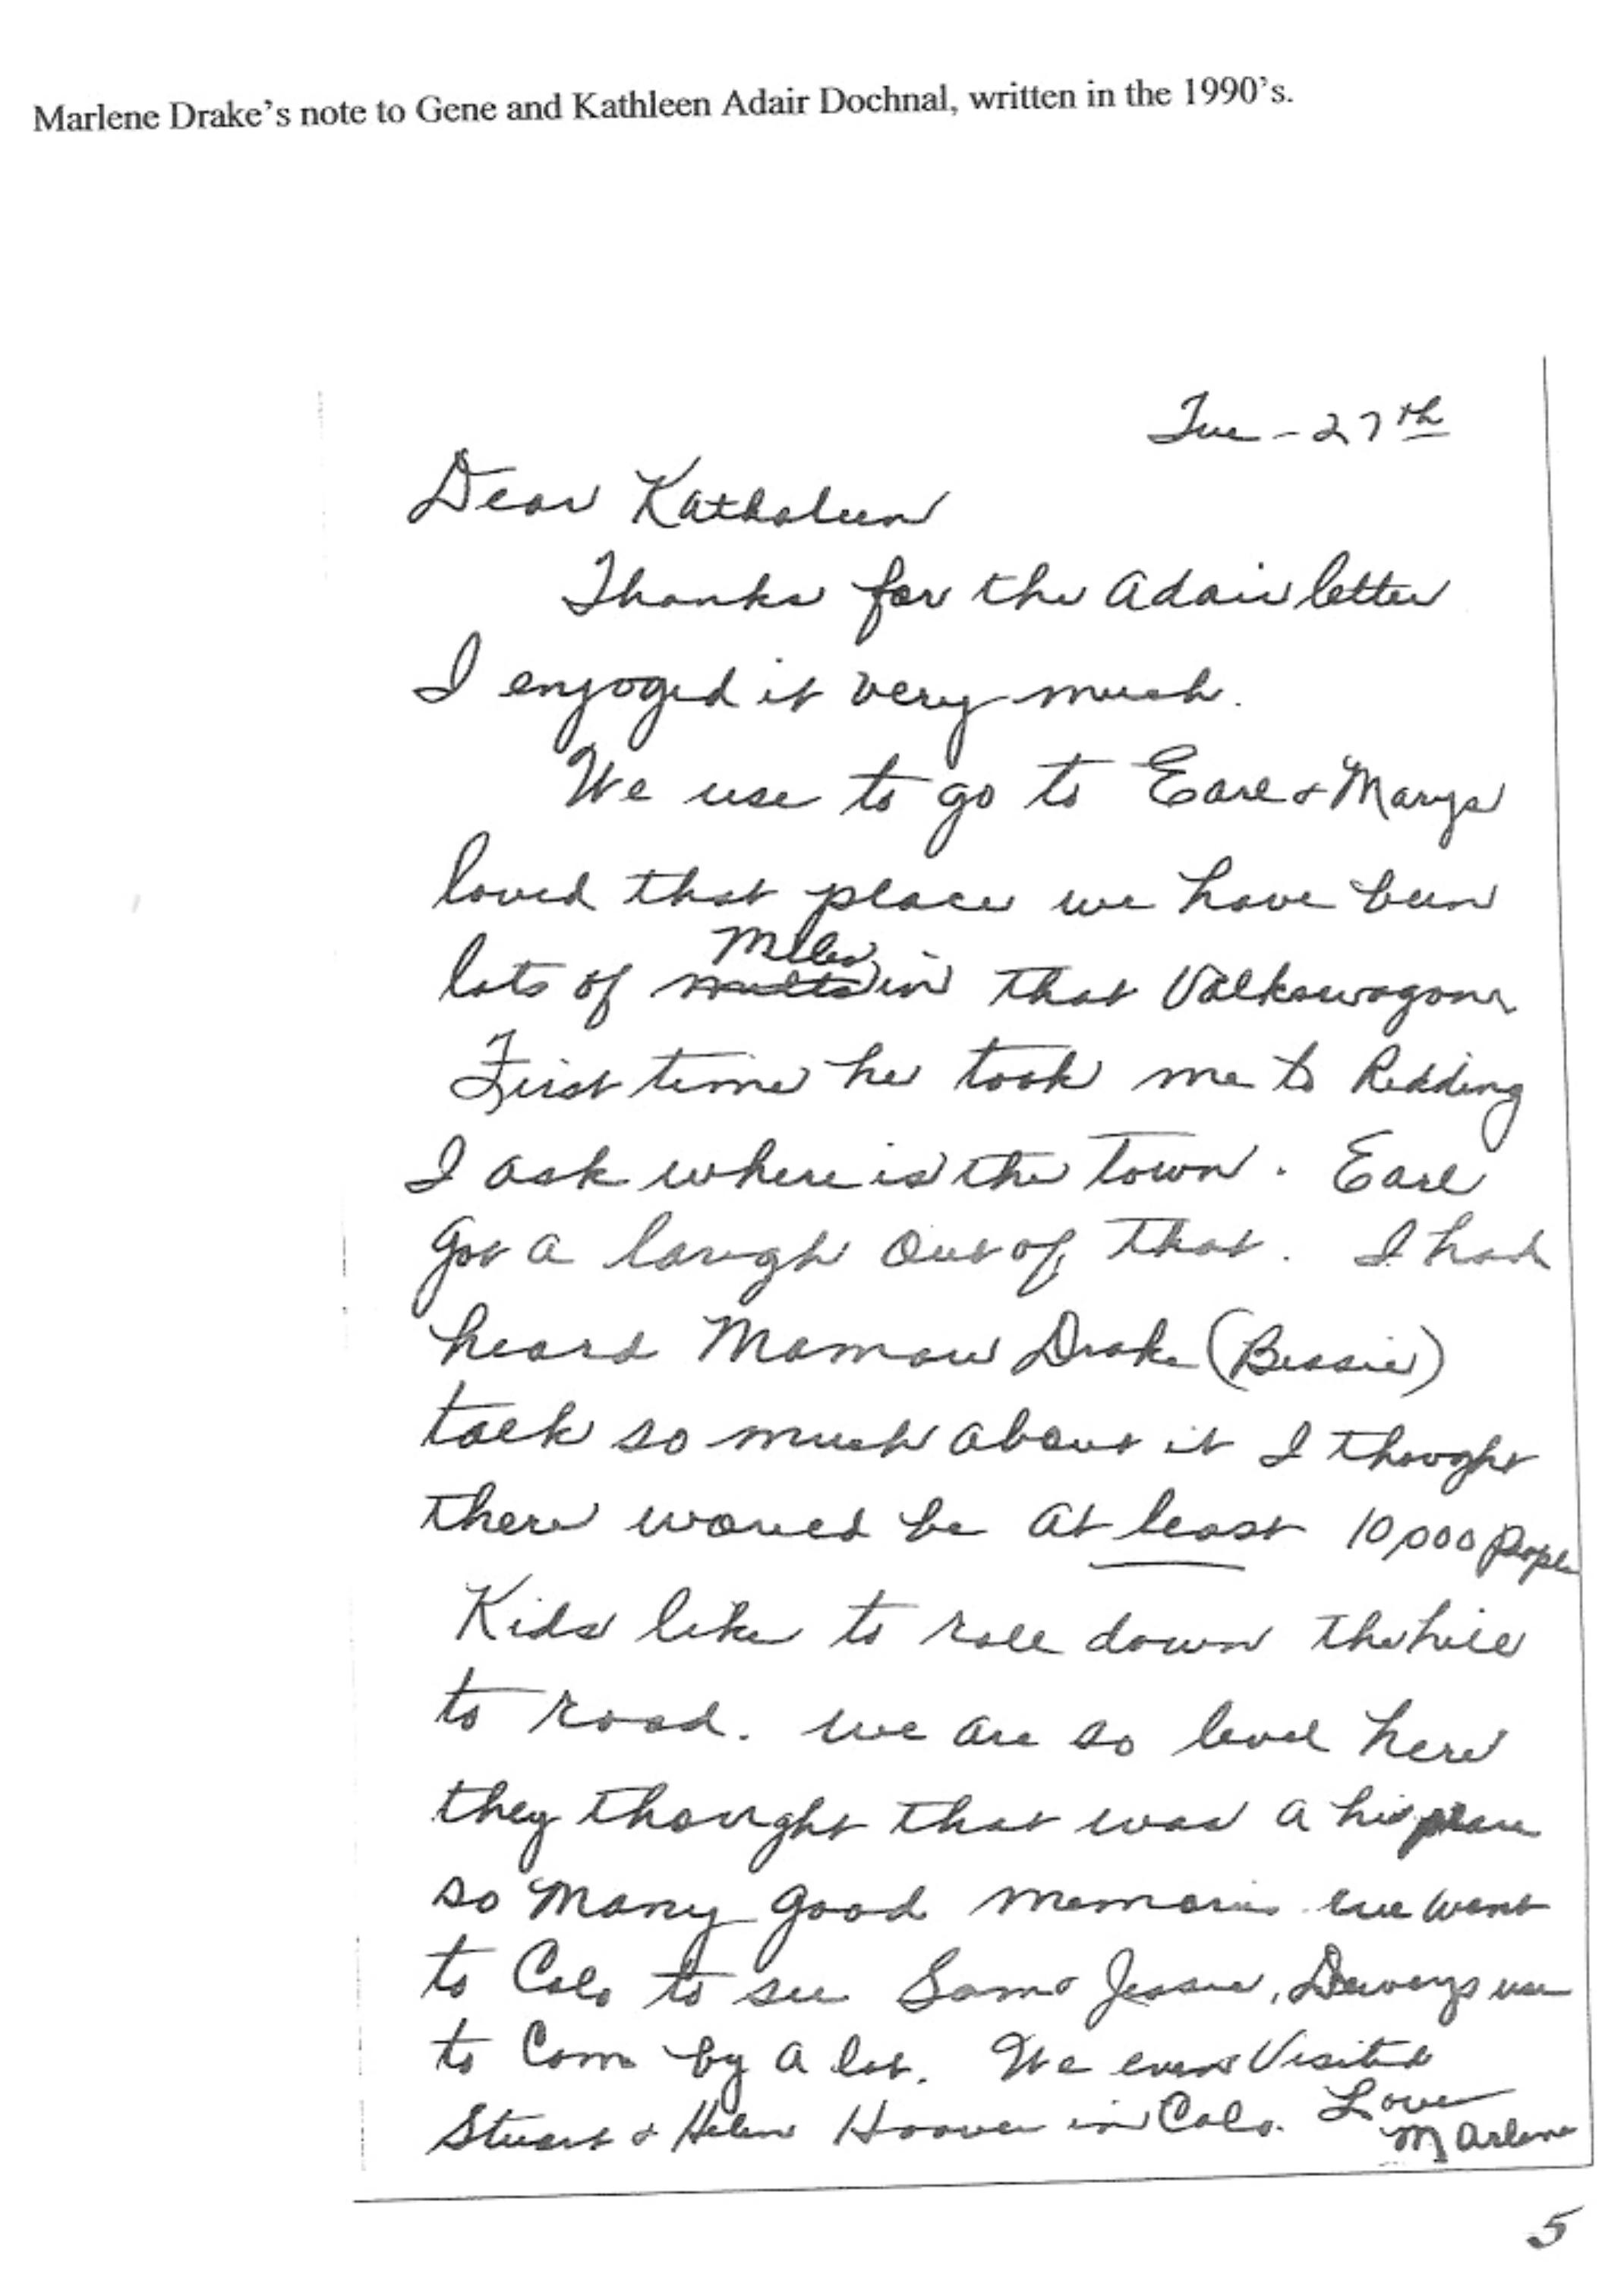 Marlene Drake's note to Gene and Kathleen Adair Dochnal, written in the 1990's.
Tue - 27th
Dear Kathaleen
Thanks for the Adair letter
I enjoyed it very much.
We use to go to Earl & Marys
loved that place we have been
lots of Miles in that Valkswagon
First time he took me to Redding
I ask where is the Town. Earl
got a laugh out of that. I had
heard Mamaw Drake (Bessie)
talk so much about it I thought
there would be at least 10,000 people
Kids like to roll down the hill
to road. we are so level here
they thought that was a
so many good memories we went
to Colo to see Sam & Jessie, Deweys use
to Come by a lot. We even Visited
Stuart & Helen Hoover in Colo. Love
Marlene
5